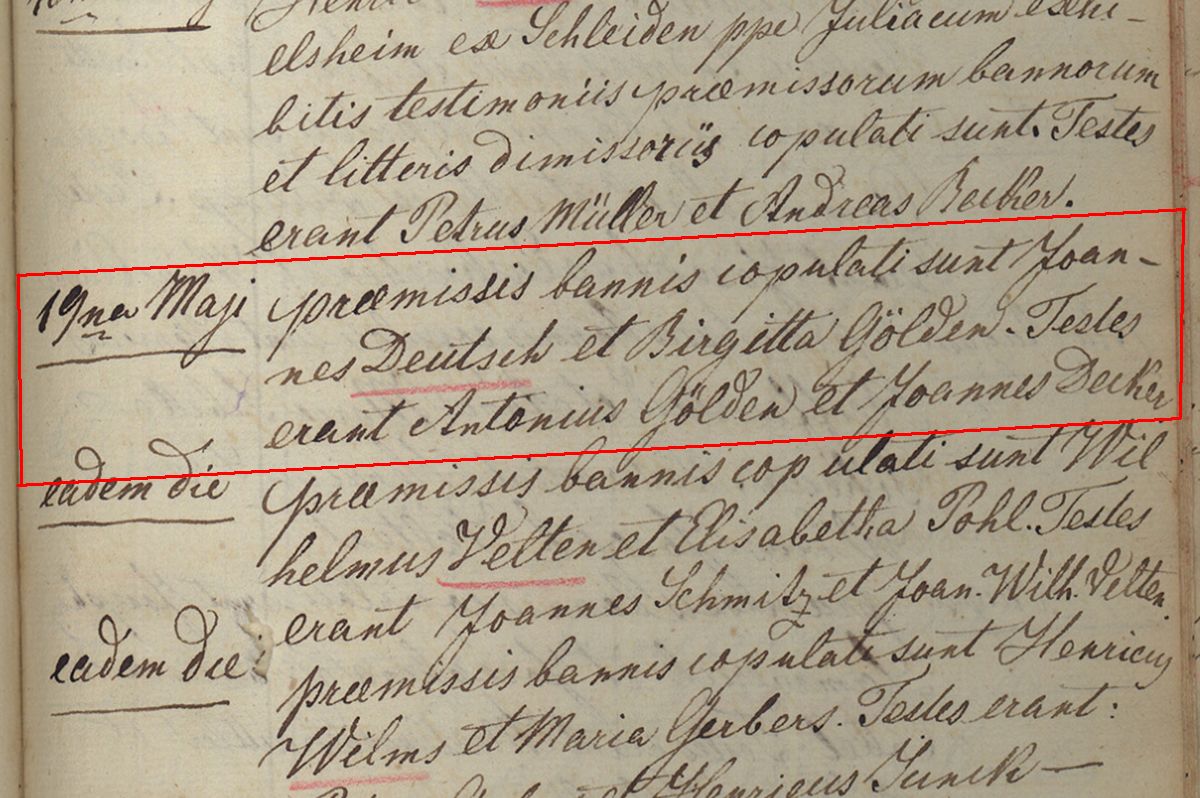 elsheim ex Schleiden ppe Juliacum exhi-
bitis testimoniis præmissorum bannorum
et litteris dimissoriis copulati sunt. Testes
erant Petrus Müller et Andreas Becker.
19na Maji præmissis bannis copulati sunt Joan-
nes Deutsch et Birgitta Gölden. Testes
erant Antonius Gölden et Joannes Decker
eadem die præmissis bannis copulati sunt Wil
helmus Velten et Elisabetha Pohl. Testes
erant Joannes Schmitz et Joan. Wilh. Velten.
eadem die præmissis bannis copulati sunt Henricus
Wilms et Maria Gerbers. Testes erant:
et Henricus Junck —